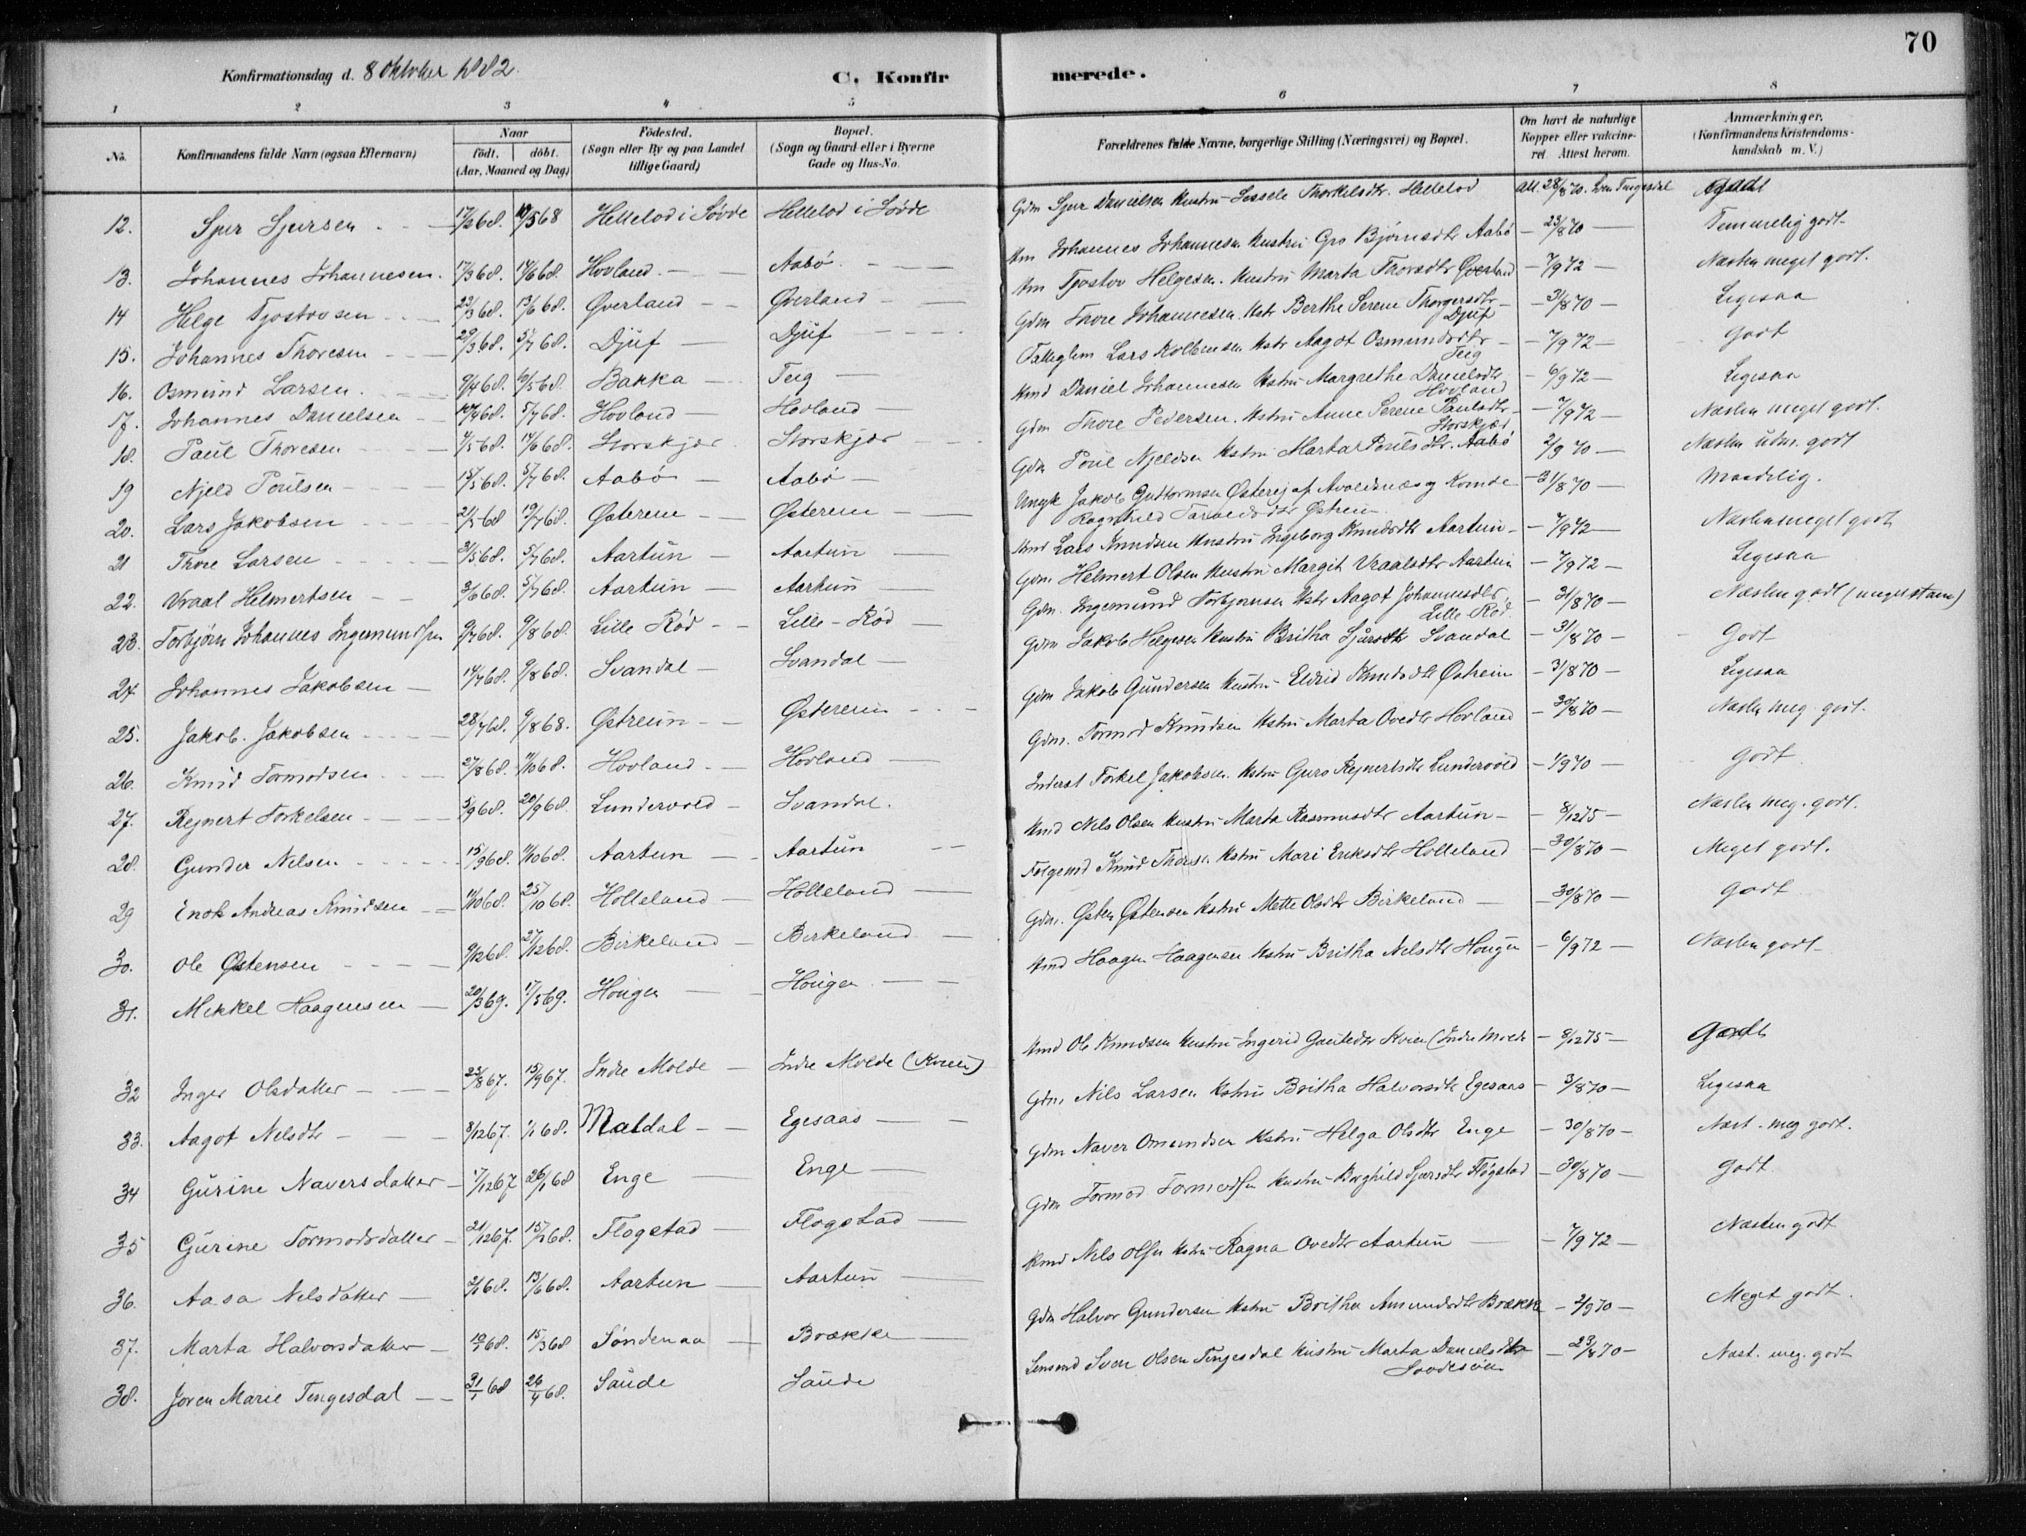 70
Konfirmationsdag d. 8 Oktober 1882. C. Konfirmerede.
1 2 3 4 5 6 7 8
No. Konfirmandens fulde Navn (ogsaa Efternavn) Naar født, døbt. (Aar, Maaned og Dag) Fødested. (Sogn eller By og paa Landet tillige Gaard) Bopæl. (Sogn og Gaard eller i Byerne Gade og Hus-No. Forældrenes fulde Navne, borgerlige Stilling (Næringsvei) og Bopæl. Om havt de naturlige Kopper eller vakcineret. Attest herom. Anmærkninger. (Konfirmandens Kristendomskundskab m. V.)
12. Sjur Sjursen 17/2 68. 10/5 68 Hellelod i Søvde Hellelod i Søvde Gdm Sjur Danielsen Hustru Sissele Thorkelsdtr. Hellelod Att. 28/8 70. Sven Tengesdal Godt
13. Johannes Johannesen 17/3 68. 14/6 68. Hovland Aabø Km Johannes Johannesen Hustru Gro Bjørnsdtr Aabø 23/8 70 Temmelig godt
14 Helge Tjostovsen 23/3 68. 13/6 68. Øverland Øverland Km Tjostov Helgesen Hustru Marta Thorsdtr Øverland 7/9 72 Næsten meget godt.
15. Johannes Thoresen 29/3 68. 5/7 68. Djuf Djuf Gdm Thore Johannesen Hstr Berthe Serene Thorgersdtr Djuf 31/8 70 Ligesaa
16. Osmund Larsen 9/4 68. 10/5 68. Bakka Teig Lars Kolbensen Hstr Aagot Osmundsdtr Teig 7/9 72 Godt
17. Johannes Danielsen 10/4 68. 5/7 68. Hovland Hovland Kmd Daniel Johannesen Hstru Margrethe Danielsdtr Hovland 6/9 72 Ligesaa
18. Paul Thoresen 1/5 68. 14/6 68. Storskjær Storskjær Gdm Thore Pedersen Hstru Anne Serene Paulsdtr Storskjær 7/9 72 Næsten meget godt.
19 Njeld Poulsen 15/5 68. 5/7 68. Aabø Aabø Gdm Poul Njeldsen Hstru Marta Poulsdtr. Aabø 2/9 70 Næsten udm. godt
20. Lars Jakobsen 21/5 68 19/7 68. Østerein Østerein Ungk Jakob Guttormsen Østerej af Avaldsnæs og Kvinde Ragnhild Østrein 31/8 70 Maadelig.
21 Thore Larsen 31/5 68. 5/7 68. Aartun Aartun Kmd Lars Knudsen Hustru Ingeborg Knudsdtr Aartun 7/9 72 Næsten meget godt
22. Vraal Helmertsen 3/6 68. 5/7 68. Aartun Aartun Gdm. Helmert Olsen Hustru Margit Vraalsdtr Aartun 7/9 72 Ligesaa
23. Torbjørn Johannes Ingemundsen 9/7 68. 9/8 68. Lille Rød Lille-Rød Gdm. Ingemund Torbjørnsen Hstr Aagot Johannesdtr Lille Rød 31/8 70 Næsten godt (meget stam)
24. Johannes Jakobsen 14/7 68. 9/8 68. Svandal Svandal Gdm Jakob Helgesen Hustru Britha Sjursdtr Svandal 31/8 70 Godt
25. Jakob Jakobsen 28/7 68. 9/8 68. Østrein Østerein Gdm Jakob Gundersen Hustru Eldrid Knudsdtr Østrein 31/8 70 Ligesaa
26. Knud Tormodsen 27/8 68. 11/10 68. Hovland Hovland Gdm. Tormod Knudsen Hstru Marta Ovedtr Hovland 30/8 70 Næsten meg. godt.
27. Rejnert Torkelsen 5/9 68. 20/9 68. Lundervold Svandal. Inderst Torkel Jakobsen Hstru Guro Rejnertsdtr Lundervold 1/9 70 Godt
28. Gunder Nilsen 15/9 68. 11/10 68. Aartun Aartun Kmd Nils Olsen Hustru Marta Rasmusdtr Aartun 8/12 75 Næsten meg. godt.
29 Enok Andreas Knudsen 11/10 68. 25/10 68. Holleland Holleland Folgemd Knud Thorsen Hstru Mari Eriksdtr Holleland 30/8 70 Meget godt.
30. Ole Østensen 9/12 68. 27/12 68. Birkeland Birkeland Gdm. Østen Østensen Hstru Mette Olsdtr Birkeland 30/8 70 Godt
31. Mikkel Haagensen 20/3 69. 17/5 69. Hougen Hougen Kmd Haagen Haagensen Hstru Britha Nilsdtr Hougen 6/9 72 Næsten godt
32 Inger Olsdatter 23/8 67. 15/9 67. Indre Molde Indre Molde (Kvien) Kmd Ole Knudsen Hustru Ingerid Gautedtr Kvien (Indre Molde 8/12 75 Godt
33. Aagot Nilsdtr 8/12 67. 1/1 68. Maldal Egesaas Gdm. Nils Larsen Hstru Britha Halvorsdtr Egesaas 31/8 70 Ligesaa
34 Gurine Naversdatter 17/12 67 26/1 68 Enge Enge Gdm Naver Omundsen Hstru Helga Olsdtr Enge 30/8 70 Næst. meg godt.
35 Gurine Tormodsdatter 21/12 67. 15/3 68. Flogstad Flogstad Gdm Tormod Tormodsen Hustru Borghild Sjursdtr Fløgstad 30/8 70 Godt
36. Aasa Nilsdatter 2/1 68. 13/6 68. Aartun Aartun Kmd Nils Olsen Hstru Ragna Ovedtr Aartun 7/9 72 Næsten godt
37. Marta Halvorsdatter 68. 15/3 68 Søndenaa Brække Gdm Halvor Gundersen Hstru Britha Amundsdtr Brække 2/9 70 Meget godt.
38. Joren Marie Tengesdal 31/1 68 26/4 68. Saude Saude Sven Olsen Tengesdal Hustru Marta Danielsdtr 23/8 70 Næst. meg. godt